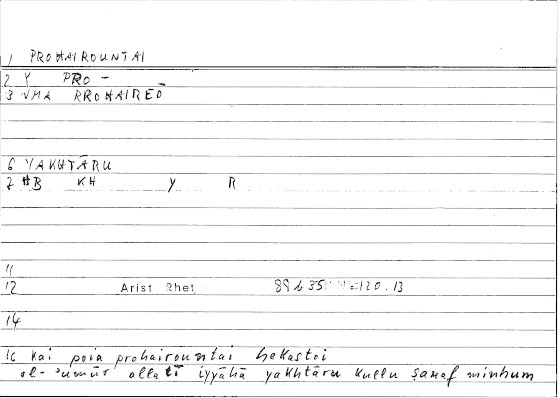 1 PROHAIROUNTAI
2 Y PRO -
3 VMA PROHAIREŌ
6 YAKHTĀRU
7 HB KH Y R
11
12 Arist Rhet 88b35 120.13
14
16 kai poia prohairountai hekastoi
al-ʾumūr allatī iyyāhā yakhtāru kullu ṣanaf minhum